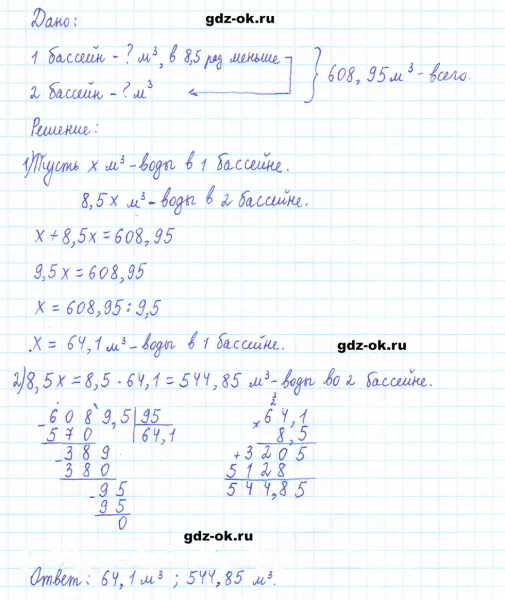 gdz-ok.ru
Дано:
1 бассейн - ? м³, в 8,5 раз меньше
608,95 м³ - всего.
2 бассейн - ? м³
Решение:
1) Пусть x м³ - воды в 1 бассейне.
8,5x м³ - воды в 2 бассейне.
x + 8,5x = 608,95
9,5x = 608,95
x = 608,95 : 9,5
gdz-ok.ru
x = 64,1 м³ - воды в 1 бассейне.
2) 8,5x = 8,5 · 64,1 = 544,85 м³ - воды во 2 бассейне.
- 6089,5 | 95
570 | 64,1
- 389
380
- 95
95
0
2
× 64,1
8,5
+ 3205
5128
544,85
gdz-ok.ru
Ответ: 64,1 м³ ; 544,85 м³.